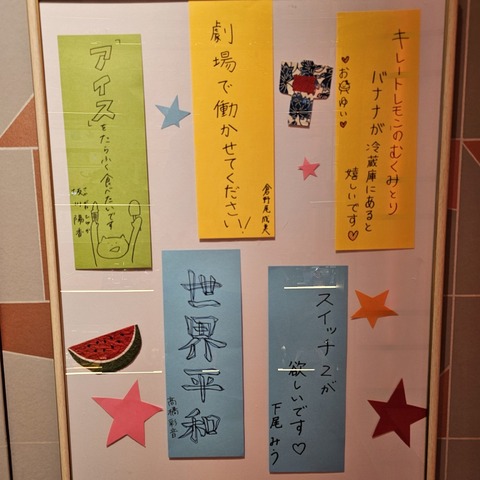 キレートレモンのむくみとり
バナナが冷蔵庫にあると
嬉しいです♡
♡おゆい♡
劇場で働かせてください!!
倉野尾成美
「アイス」をたらふく食べたいです
坂川陽香
スイッチ2が
欲しいです♡
下尾みう
世界平和
高橋彩音